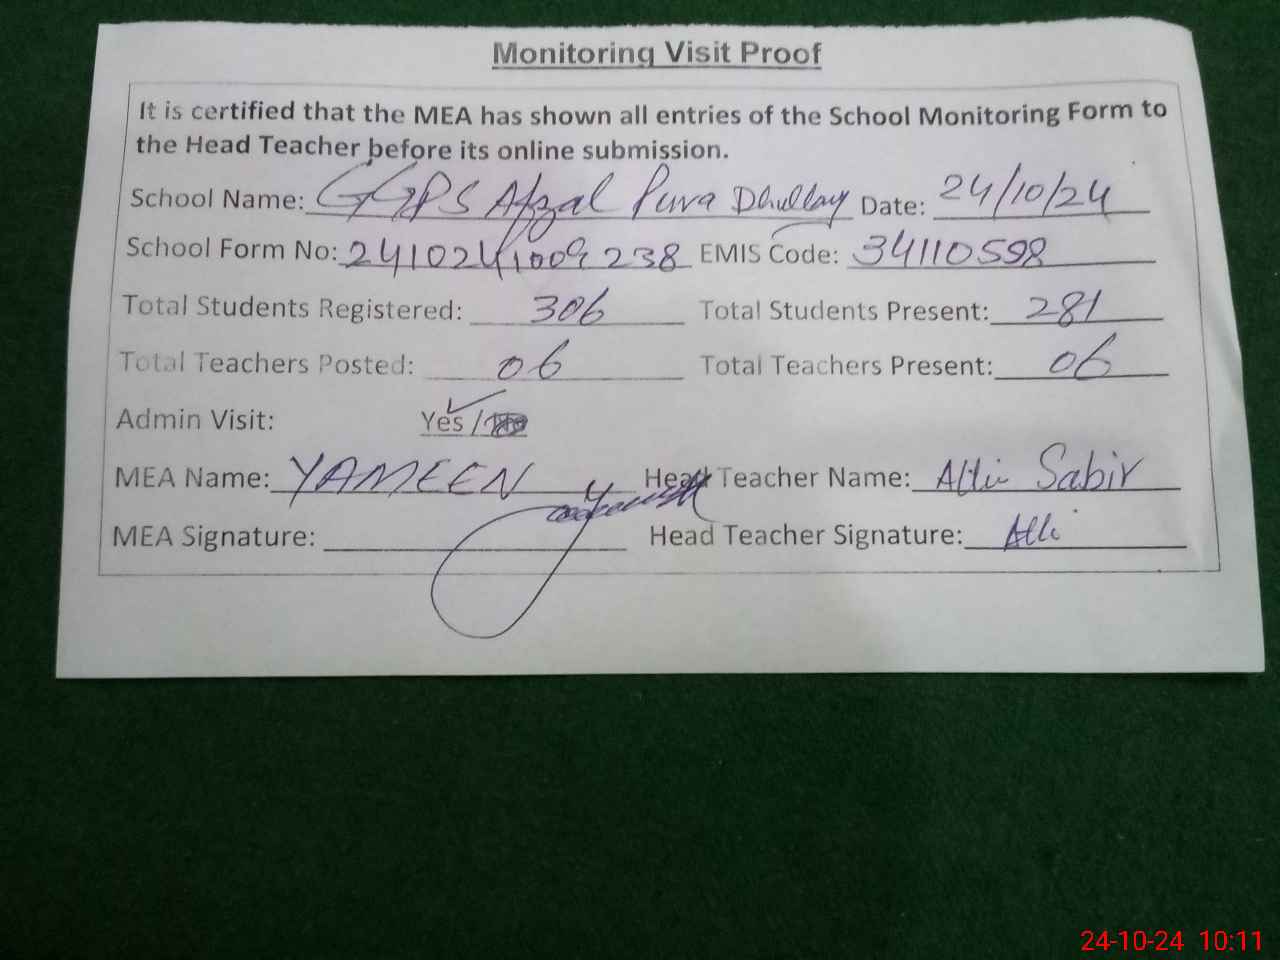 Monitoring Visit Proof
It is certified that the MEA has shown all entries of the School Monitoring Form to
the Head Teacher before its online submission.
School Name: GGPS Afzal Pura Dhullay Date: 24/10/24
School Form No: 2410241009238 EMIS Code: 34110598
Total Students Registered: 306 Total Students Present: 281
Total Teachers Posted: 06 Total Teachers Present: 06
Admin Visit: Yes /
MEA Name: YAMEEN Head Teacher Name: Sabir
MEA Signature: Head Teacher Signature:
24-10-24 10:11